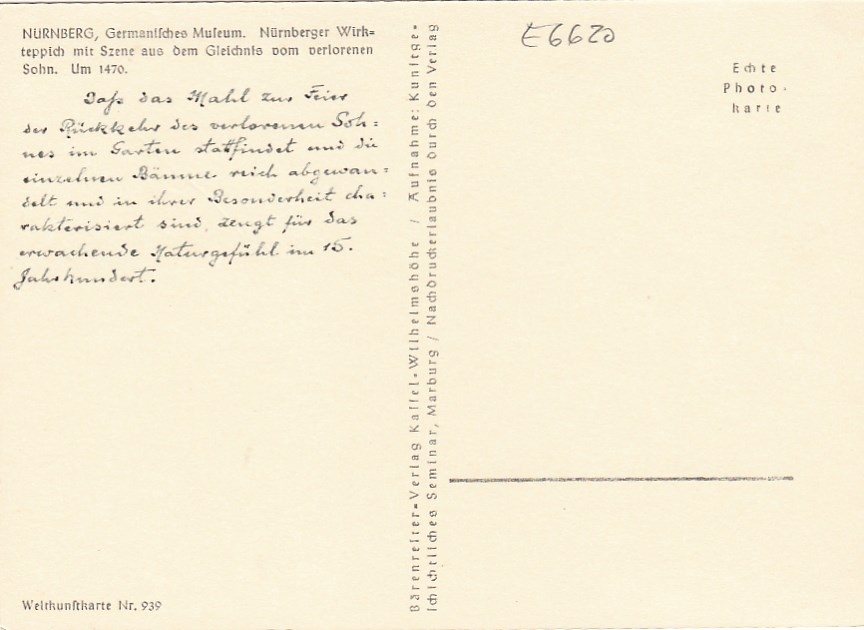 NÜRNBERG, Germaniſches Muſeum. Nürnberger Wirk=
teppich mit Szene aus dem Gleichnis vom verlorenen
Sohn. Um 1470.
Daſs das Mahl zur Feier
der Rückkehr des verlorenen Soh=
nes im Garten stattfindet und die
einzelnen Bäume reich abgewan=
delt und in ihrer Besonderheit cha=
rakterisiert sind, zeugt für das
erwachende Naturgefühl im 15.
Jahrhundert.
Weltkunſtkarte Nr. 939
Bärenreiter-Verlag Kaſſel-Wilhelmshöhe / Aufnahme: Kunſtge-
ſchichtliches Seminar, Marburg / Nachdruckerlaubnis durch den Verlag
E6620
Echte
Photo-
karte